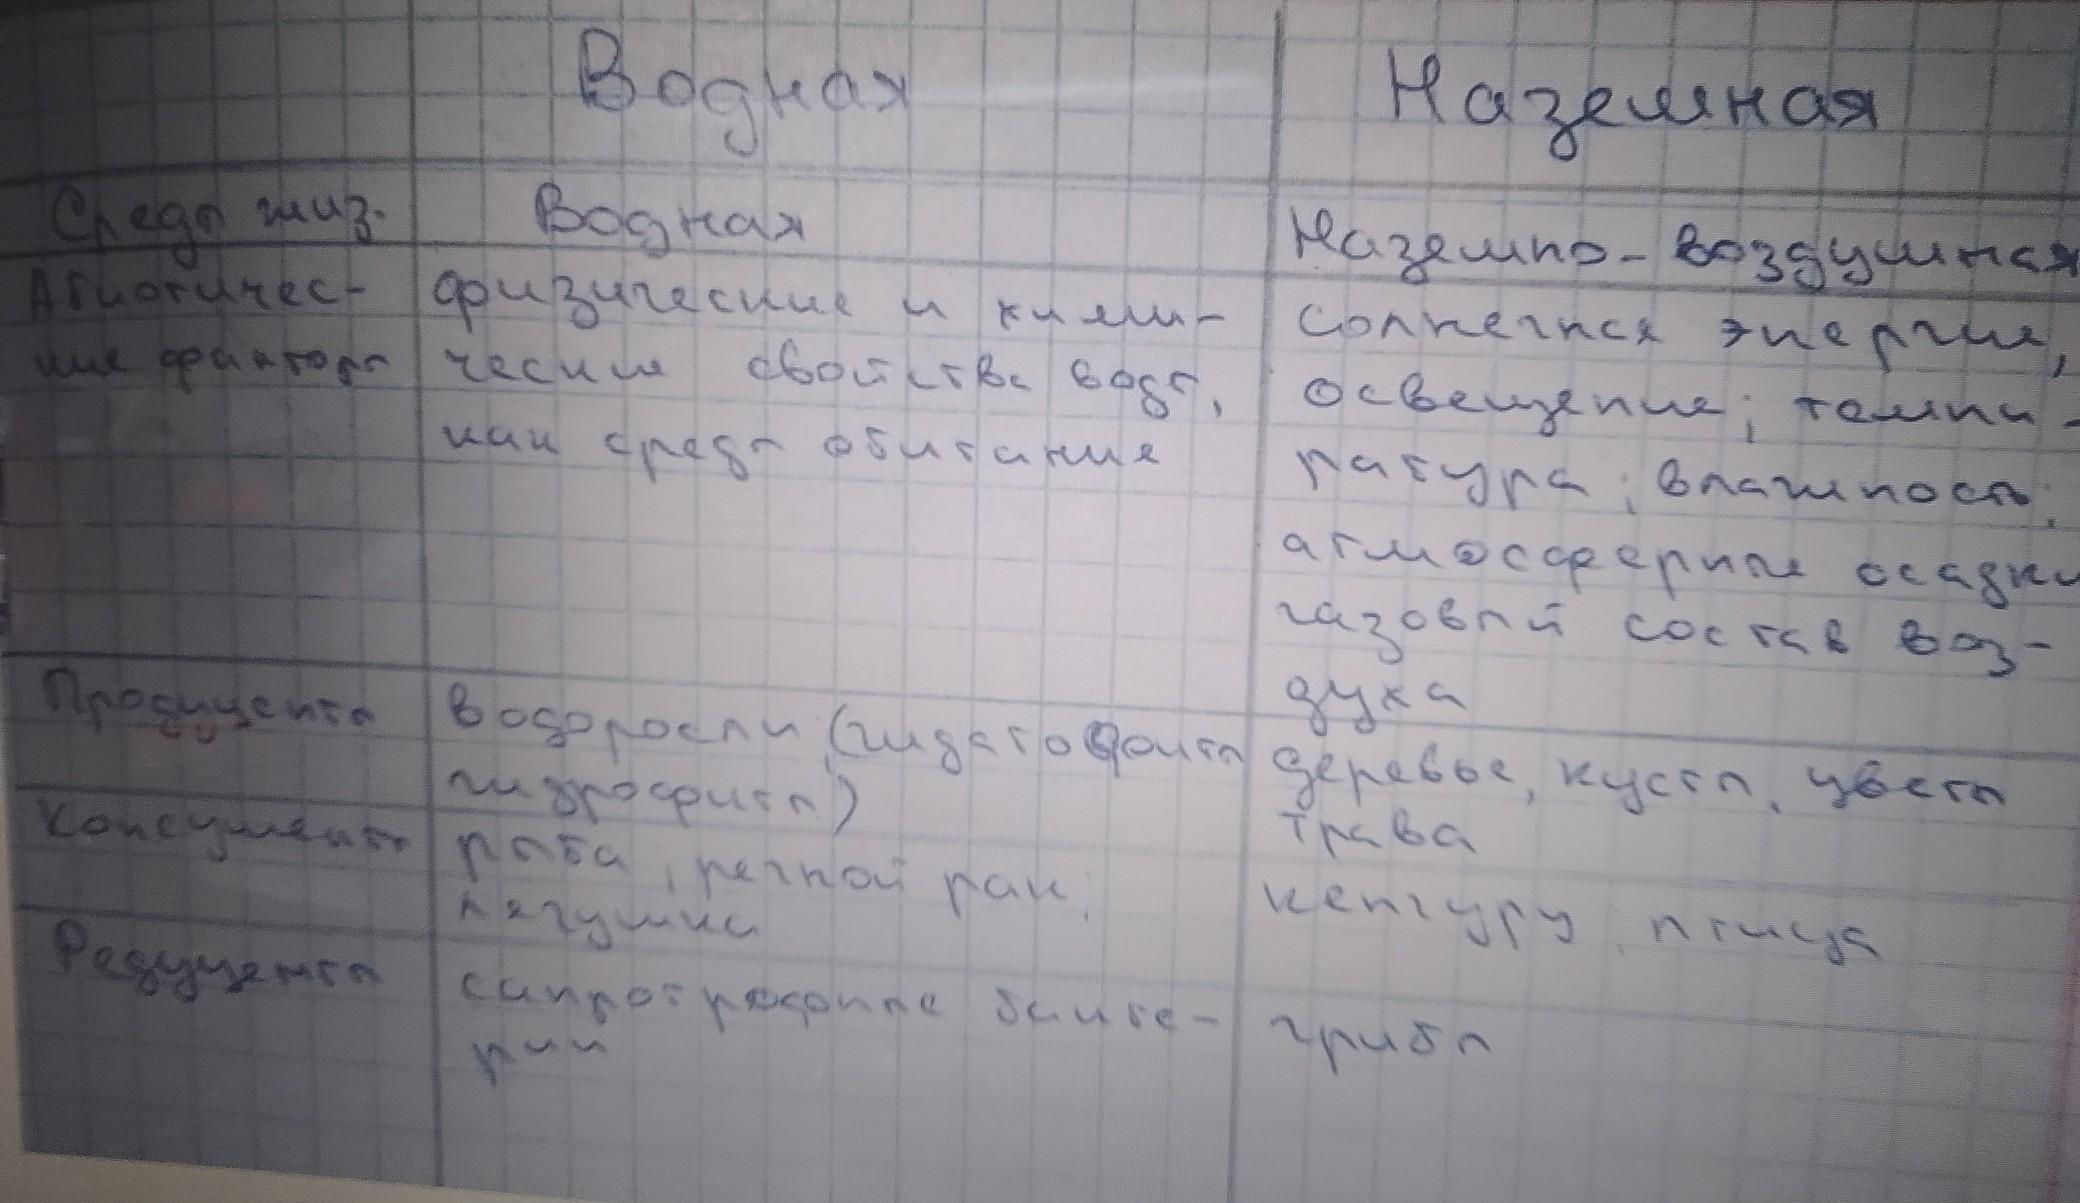 Водная
Наземная
Среда жиз.
Водная
Наземно-воздушная
Абиотичес-
кие факторы
физические и хими-
ческие свойства воды,
как среды обитание
солнечная энергие,
освещение; темпи-
ратура; влажность;
атмосферные осадки
газовый состав воз-
духа
Продуценты
водоросли (гидатофиты
гидрофиты)
деревье, кусты, цветы
трава
Консументы
рыба, речной рак,
лягушка
кенгуру, птица
Редуценты
сапротрофные бакте-
рии
грибы